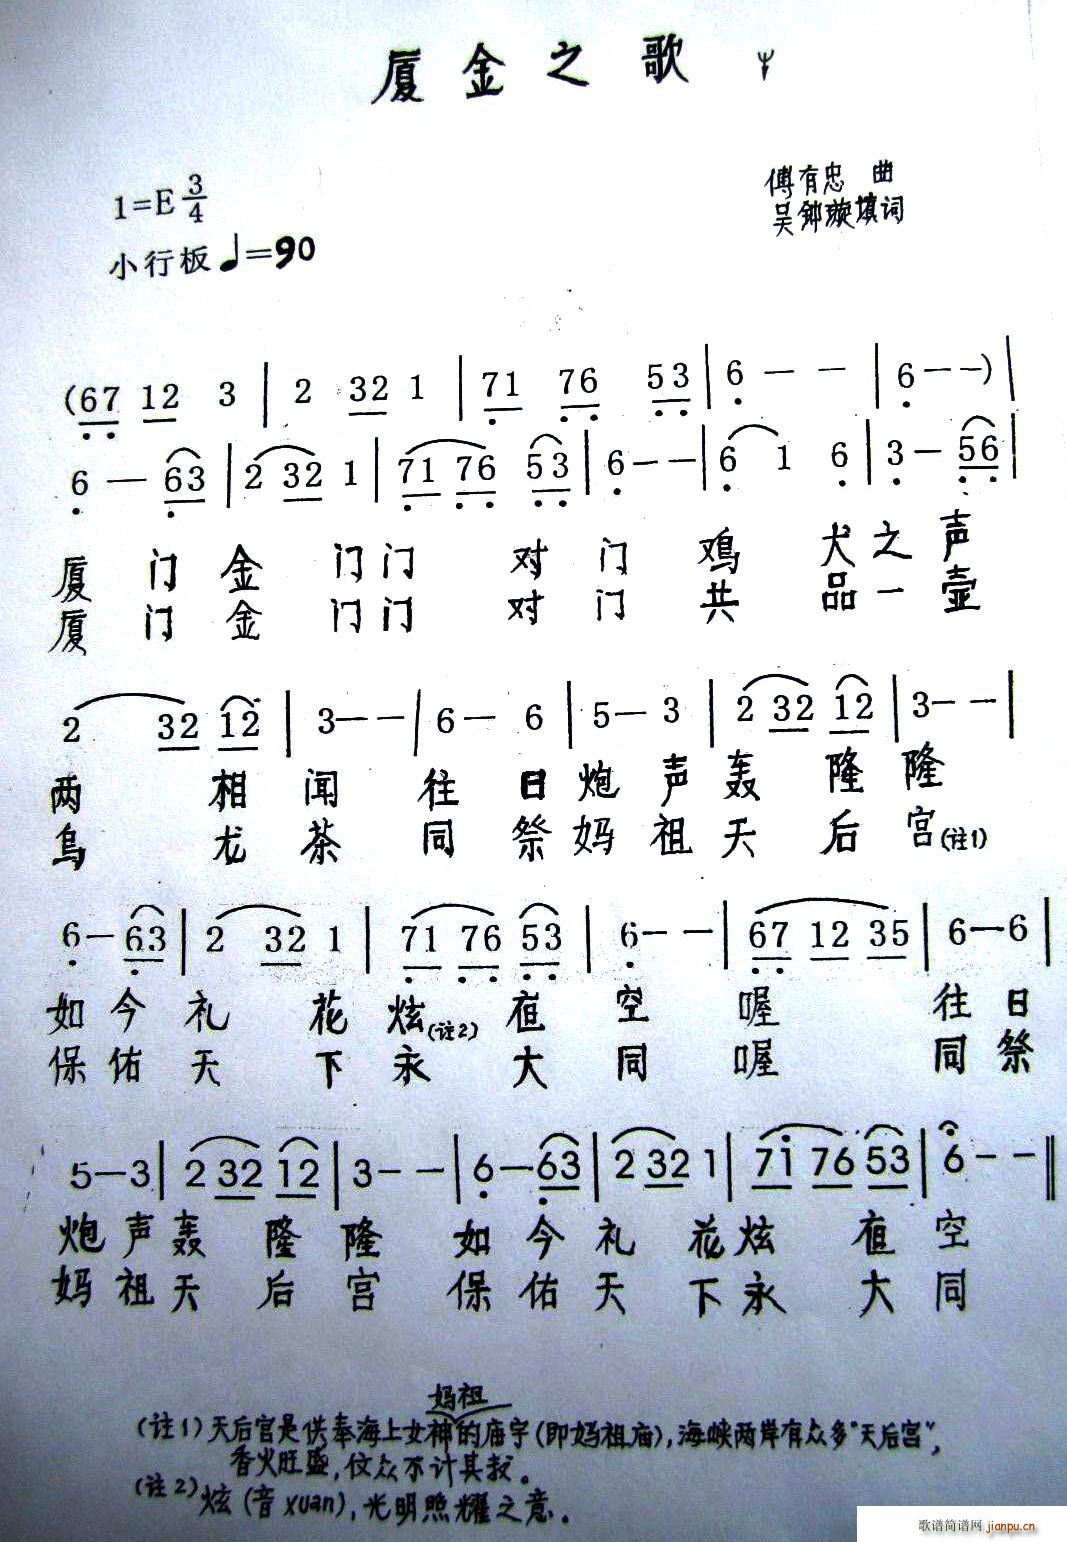 厦金之歌
1=E 3/4
傅有忠 曲
吴钟璇填词
小行板 ♩=90
(67 12 3 | 2 32 1 | 71 76 53 | 6 - - | 6 - - ) |
6 — 63 | 2 32 1 | 71 76 53 | 6 - - | 6 1 6 | 3 - 56 |
厦门金门门对门鸡犬之声
厦门金门门对门共品一壶
2 32 12 | 3 - - | 6 - 6 | 5 - 3 | 2 32 12 | 3 - - |
两相闻往日炮声轰隆隆
乌龙茶同祭妈祖天后宫(註1)
6 - 63 | 2 32 1 | 71 76 53 | 6 - - | 67 12 35 | 6 - 6 |
如今礼花炫(註2)夜空喔往日
保佑天下永大同喔同祭
5 - 3 | 2 32 12 | 3 - - | 6 - 63 | 2 32 1 | 71 76 53 | 6 - - ‖
炮声轰隆隆如今礼花炫夜空
妈祖天后宫保佑天下永大同
妈祖
(註1)天后宫是供奉海上女神的庙宇(即妈祖庙),海峡两岸有众多"天后宫",
香火旺盛,信众不计其数。
(註2)炫(音xuan),光明照耀之意。
歌谱简谱网 jianpu.cn